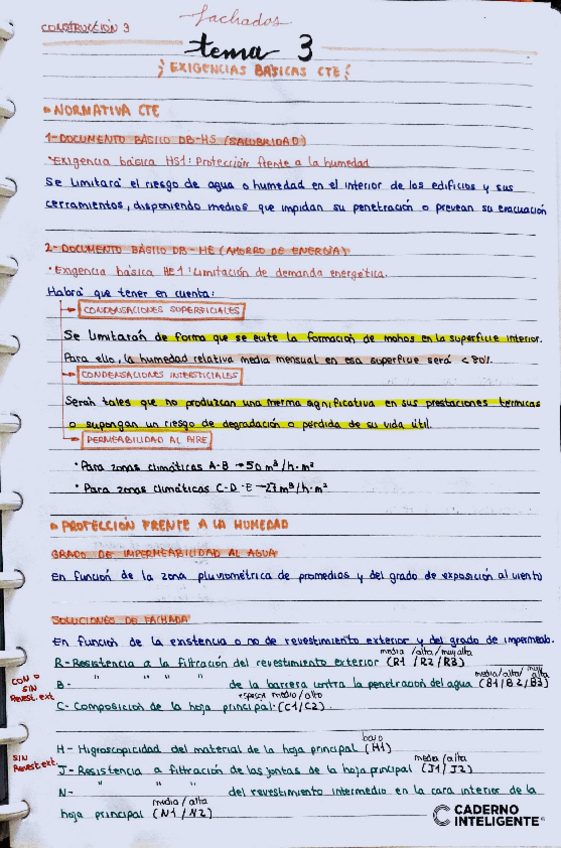 CONSTRUCCIÓN 3
fachadas
tema 3
EXIGENCIAS BÁSICAS CTE
NORMATIVA CTE
1-DOCUMENTO BÁSICO DB-HS (SALUBRIDAD)
·Exigencia básica HS1: Protección frente a la humedad
Se limitará el riesgo de agua o humedad en el interior de los edificios y sus
cerramientos, disponiendo medios que impidan su penetración o prevean su evacuación
2-DOCUMENTO BÁSICO DB-HE (AHORRO DE ENERGÍA)
·Exigencia básica HE1: Limitación de demanda energética.
Habrá que tener en cuenta:
CONDENSACIONES SUPERFICIALES
Se limitarán de forma que se evite la formación de mohos en la superficie interior.
Para ello, la humedad relativa media mensual en esa superficie será <80%.
CONDENSACIONES INTERSTICIALES
Serán tales que no produzcan una merma significativa en sus prestaciones térmicas
o supongan un riesgo de degradación o pérdida de su vida útil.
PERMEABILIDAD AL AIRE
·Para zonas climáticas A-B → 50 m³/h·m²
·Para zonas climáticas C-D-E → 27 m³/h·m²
PROTECCIÓN FRENTE A LA HUMEDAD
GRADO DE IMPERMEABILIDAD AL AGUA
En función de la zona pluviométrica de promedios y del grado de exposición al viento
SOLUCIONES DE FACHADA
En función de la existencia o no de revestimiento exterior y del grado de impermeab.
media /alta/ muy alta
R-Resistencia a la filtración del revestimiento exterior (R1 /R2 /R3)
CON O SIN Revest. ext
media/alta/ muy alta
B- " " " de la barrera contra la penetración del agua (B1/B2/B3)
espesor medio/alto
C- Composición de la hoja principal·(C1/C2).
bajo
H- Higroscopicidad del material de la hoja principal (H1)
SIN Revest.ext.
media /alta
J- Resistencia a filtración de las juntas de la hoja principal (J1/J2)
N- " " del revestimiento intermedio en la cara interior de la
media /alta
hoja principal (N1/N2)
CADERNO
INTELIGENTE